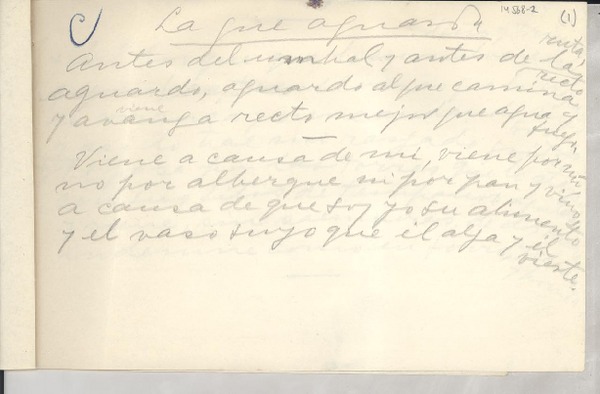 14568-2
(1)
La que aguarda
Antes del umbral y antes de la ruta,
aguardo, aguardo al que camina recto
y avanza viene recto mejor que agua y fuego.
Viene a causa de mí, viene por mí
no por albergue ni por pan y vino
a causa de que soy yo su alimento
y el vaso suyo que él alza y él vierte.